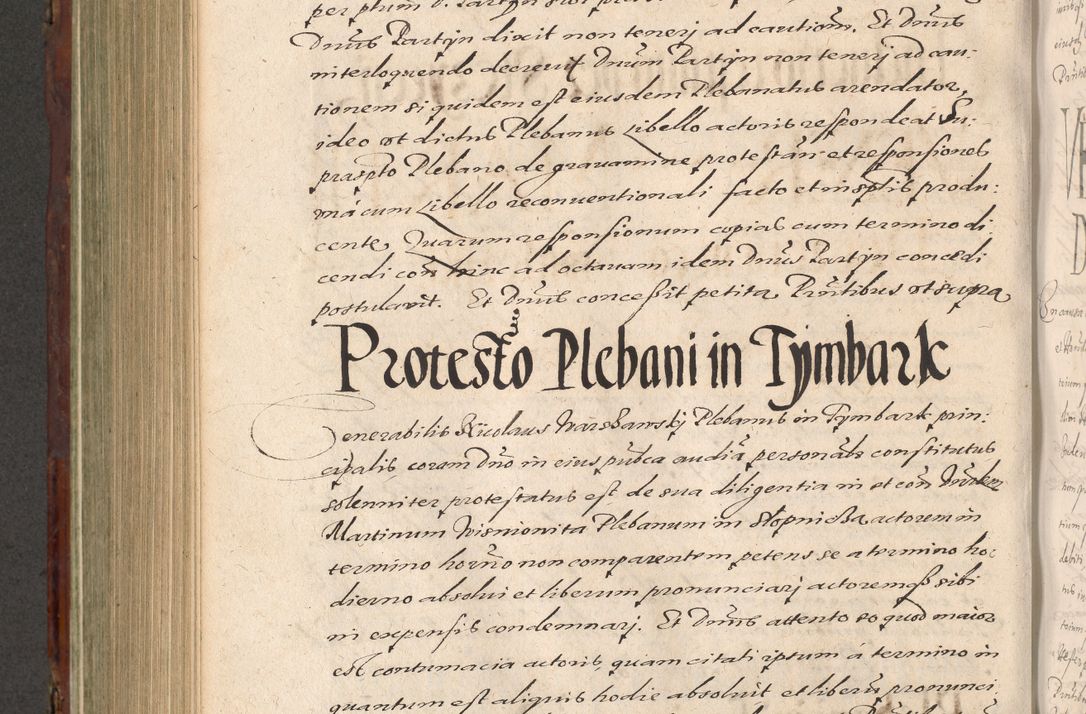 Dnus Partyn dixit non tenerj ad cautiom. Et Dnus
interloquendo decreuit Dnum Partyn non tenerj ad cau:
tionem si quidem est eiusdem Plebanatus arendator,
ideo vt dictus Plebanus Libello actoris respondeat Su:
prascpto Plebano de grauamine protestan: et responsiones
vná cum Libello reconuentionali facto et in scptis produ:
cente, Quarum responsionum copias cum termino di:
cendi con hinc ad octauam idem Dnus Partyn concedi
postulauit. Et Dnus concessit petita Pnntibus vt supra
Protesto Plebani in Tymbark
Venerabilis Nicolaus Warshawskj Plebanus in Tymbark prin:
cipalis coram Dno in eius pubca audia personals constitutus
solenniter protestatus est de sua diligentia in et con
Martinum Wisnionita Plebanum in Slopnicka actorem in
termino horno non comparentem petens se a termino ho:
dierno absolui et liberum pronunciarj actoremqs sibi
in expensis condemnarj. Et Dnus attento eo quod maior
est contumacia actoris, quam citati ipsum á termino in
quantum est aliquis hodie absoluit et liberu pronunci: